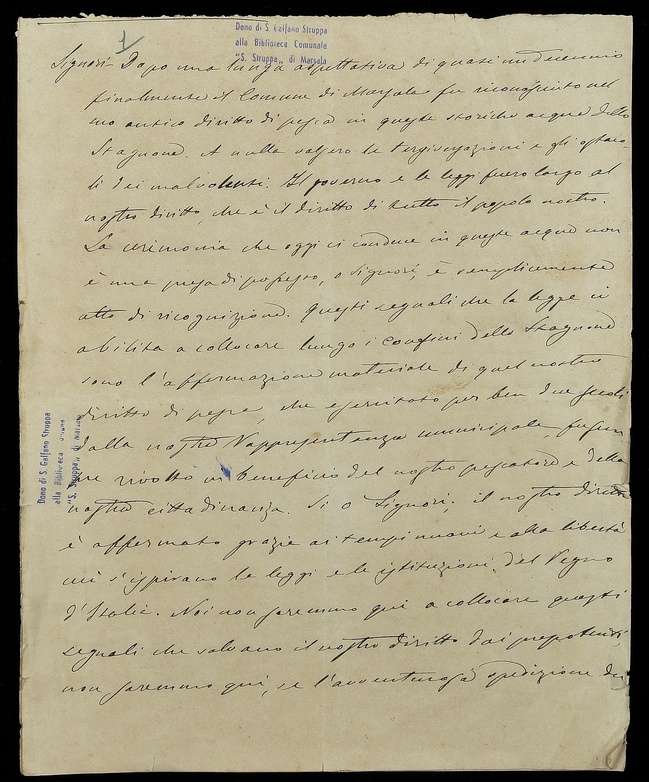 1
Dono di S. Galfano Struppa
alla Biblioteca Comunale
"S. Struppa„ di Marsala
Signori- Dopo una lunga aspettativa di quasi un decennio
finalmente il Comune di Marsala fu riconosciuto nel
suo antico diritto di pesca in queste storiche acque dello
Stagnone. A nulla valsero le tergiversazioni e gli ostaco-
li dei malvolenti. Il governo e le leggi fecero largo al
nostro diritto, che è il diritto di tutto il popolo nostro.
La cerimonia che oggi ci conduce in queste acque non
è una presa di possesso, o Signori, è semplicemente
atto di ricognizione. Questi segnali che la legge ci
abilita a collocare lungo i confini dello Stagnone
sono l'affermazione materiale di quel nostro
diritto di pesca, che esercitato per ben due secoli
dalla nostra Rappresentanza municipale,
rivolto in beneficio del nostro pescatore e della
nostra cittadinanza. Si o Signori, il nostro diritto
è affermato grazie ai tempi nuovi e alla libertà
cui s'ispirano le leggi e le istituzioni del Regno
d'Italia. Noi non saremmo qui a collocare questi
segnali che salvano il nostro diritto dai prepotenti,
non saremmo qui, se l'avventurosa spedizione dei
Dono di S. Galfano Struppa
alla Biblioteca
"S. Struppa„ di Marsala